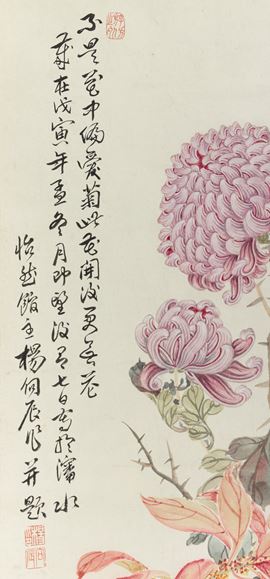 不是花中偏愛菊此花開後更無花
歲在戊寅年孟冬月即望後有七日寫於瀋水
怡然館主楊伺辰作并題